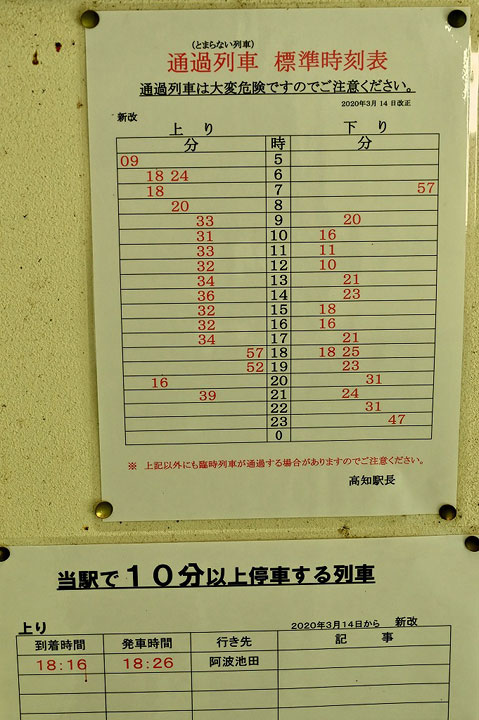 (とまらない列車)
通過列車 標準時刻表
通過列車は大変危険ですのでご注意ください。
2020年3月 14 日改正
新改
上り 下り
分 時 分
09 5
18 24 6
18 7 57
20 8
33 9 20
31 10 16
33 11 11
32 12 10
34 13 21
36 14 23
32 15 18
32 16 16
34 17 21
57 18 18 25
52 19 23
16 20 31
39 21 24
22 31
23 47
0
※ 上記以外にも臨時列車が通過する場合がありますのでご注意ください。
高知駅長
当駅で10分以上停車する列車
上り 2020年3月14日から 新改
到着時間 発車時間 行き先 記事
18:16 18:26 阿波池田